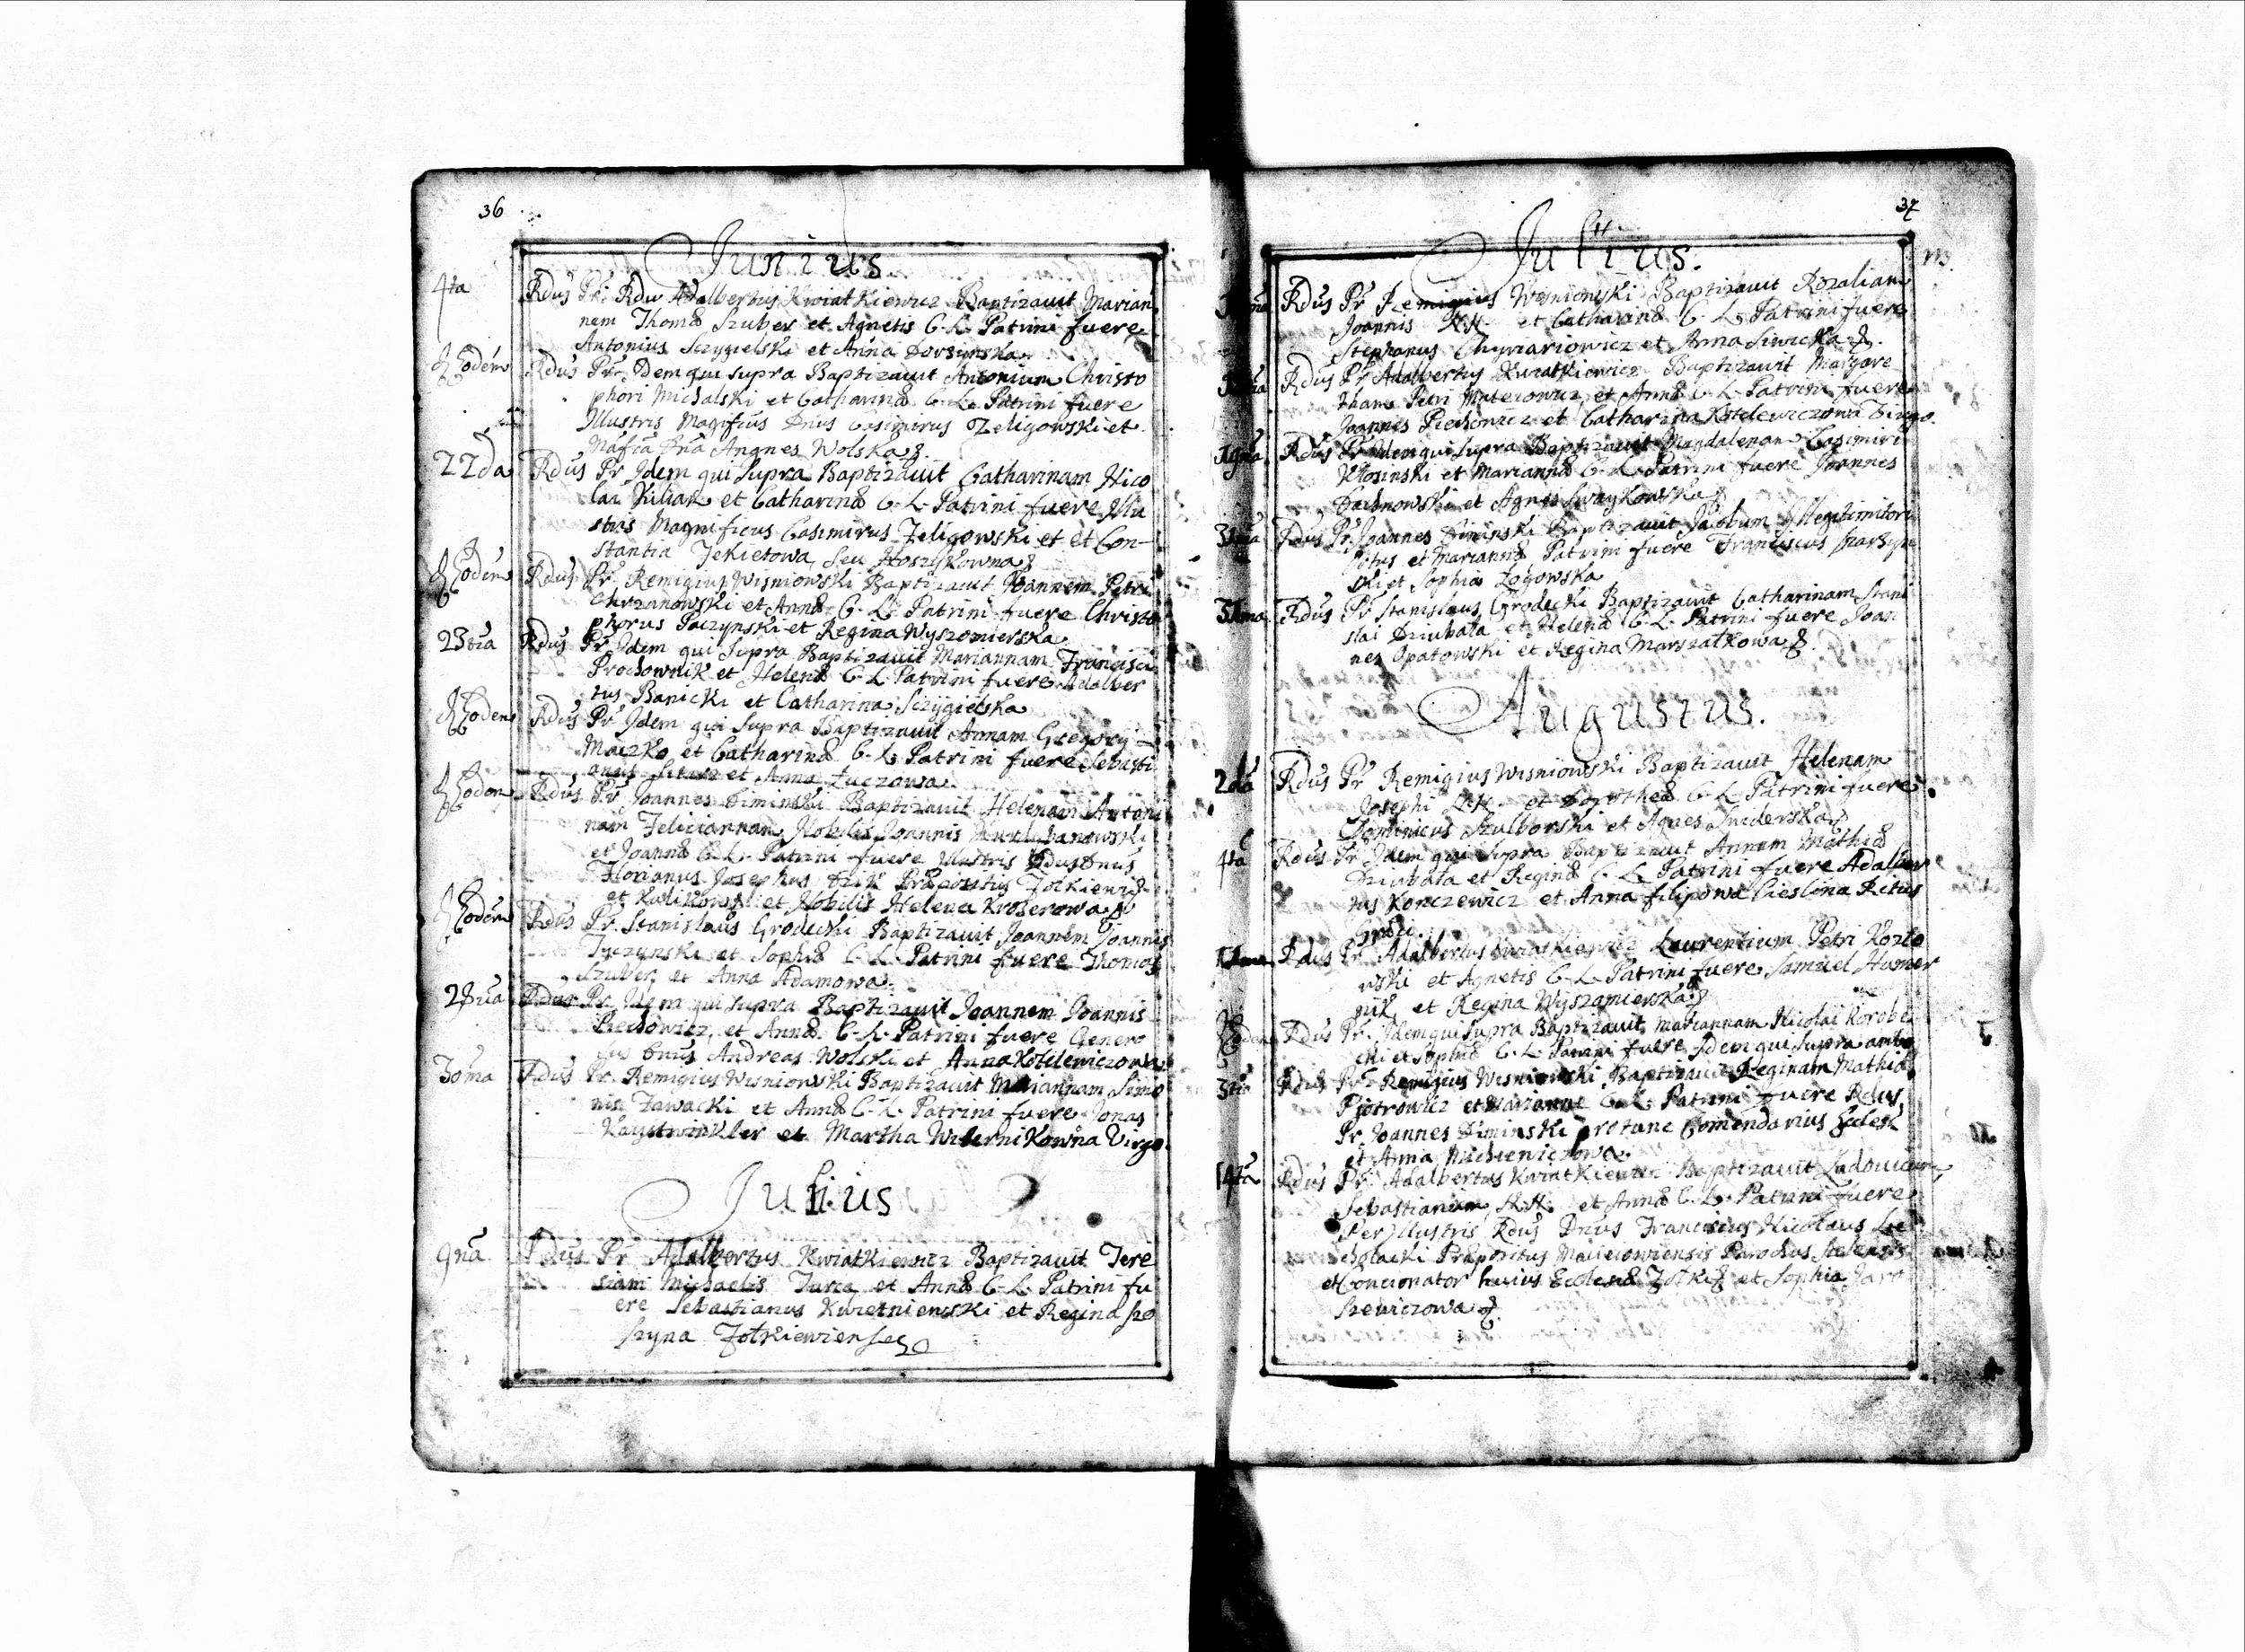 36
Junius
4ta Rdus Pr. Rdu Adalbertus Kwiatkiewicz Baptizavit Marian
nam Thomæ Szuber et Agnetis C. L. Patrini fuere
Antonius Sczygielski et Anna
Eodem Rdus Pr. Idem qui supra Baptizavit Antonium Christo
phori Michalski et Catharinæ C. L. Patrini fuere
Illustris Magificus Dnus Casimirus Zeligowski et
Angnes Wolska
22da Rdus Pr Idem qui supra Baptizavit Catharinam Nico
lai Kiliak et Catharinæ C. L. Patrini fuere Illu
stris Magnificus Casimirus Zeligowski et et Con-
stantia Jekietowa, seu
Eodem Rdus Pr. Remigius Wisniowski Baptizavit Joannem Petri
Chrzanowski et Annæ C. L. Patrini fuere Christo
phorus Paczynski et Regina Wyszomierska
23tia Rdus Pr Idem qui supra Baptizavit Mariannam Francisci
Prochownik et Helenæ C. L. Patrini fuere Adalber
tus Banicki et Catharina Sczygielska
Eodem Rdus Pr Idem qui supra Baptizavit Annam Gregory
Maczko et Catharinæ C. L. Patrini fuere Sebasti
anus et Anna Łuczowa
Eodem Rdus Pr Joannes Diminski Baptizavit Helenam Antoni
nam Feliciannam Nobilis Joannis
et Joannæ C. L. Patrini fuere Illustris Rdus Dnus
Florianus Josephus Præpositus
et et Nobilis Helena Kroberowa
Eodem Rdus Pr. Stanislaus Grodecki Baptizavit Joannem Joannis
Tyczynski et Sophiæ C. L. Patrini fuere Thomas
Szuber et Anna Adamowa
Rdus Pr. Idem qui supra Baptizavit Joannem Joannis
Piechowicz, et Annæ C. L. Patrini fuere Genero
sus Dnus Andreas Wolski et Anna Kotelewiczowa
30ma Rdus Pr. Remigius Wisniowski Baptizavit Mariannam Simo
nis Zawacki et Annæ C. L. Patrini fuere Jonas
et Martha Virgo
Julius
9na Rdus Pr Adalbertus Kwiatkiewicz Baptizavit Tere
siam Michaelis Turca et Annæ C. L. Patrini fu
ere Sebastianus Kwietniewski et Regina Szo
szyna Zołkiewienses
37
Julius.
Rdus Pr Remigius Wisniowski Baptizavit Rozaliam
Joannis N.N. et Catharinæ C. L. Patrini fuere
Stephanus et Anna Siwicka
Rdus Pr Adalbertus Kwiatkiewicz Baptizavit Margare
tham Petri Materowicz et Annæ C. L. Patrini fuere
Joannes Piechowicz et Catharina Kotelewiczowa Virgo.
Rdus Pr Idem qui supra Baptizavit Magdalenam Casimiri
Kłosinski et Mariannæ C. L. Patrini fuere Joannes
et Agnes
Rdus Pr. Joannes Diminski Baptizavit Jacobum
et Mariannæ Patrini fuere Franciscus
ski et Sophia
31ma Rdus Pr Stanislaus Grodecki Baptizavit Catharinam Stani
slai Dziubata et Helenæ C. L. Patrini fuere Joan
nes Opatowski et Regina Marszałkowa
Augustus.
2da Rdus Pr Remigius Wisniowski Baptizavit Helenam
Josephi N.N. et Dorotheæ C. L. Patrini fuere
Dominicus Szulborski et Agnes Sniderska
4ta Rdus Pr Idem qui supra Baptizavit Annam Mathiæ
Dziubata et Reginæ C. L. Patrini fuere Adalber
tus Konczewicz et Anna Filipowa Cieslina Ritus
Græci.
Rdus Pr Adalbertus Kwiatkiewicz Laurentium Petri Kozło
wski et Agnetis C. L. Patrini fuere Samuel
nik et Regina Wyszomierska
Eodem Rdus Pr. Idem qui supra Baptizavit Mariannam Nicolai
cki et Sophiæ C. L. Patrini fuere Idem qui supra ambo
Rdus Pr Remigius Wisniowski Baptizavit Reginam Mathiæ
Piotrowicz et Mariannæ C. L. Patrini fuere Rdus
Pr. Joannes Diminski protunc Comendarius
et Anna Michiewiczowa
14ta Rdus Pr. Adalbertus Kwiatkiewicz Baptizavit Ludovicum
Sebastianum, N.N. et Annæ C. L. Patrini fuere
Per Illustris Rdus Dnus Franciscus Nicolaus
Præpositus Parochus
et Concionator huius Ecclesiæ Zołkiew et Sophia Jaro
szewiczowa